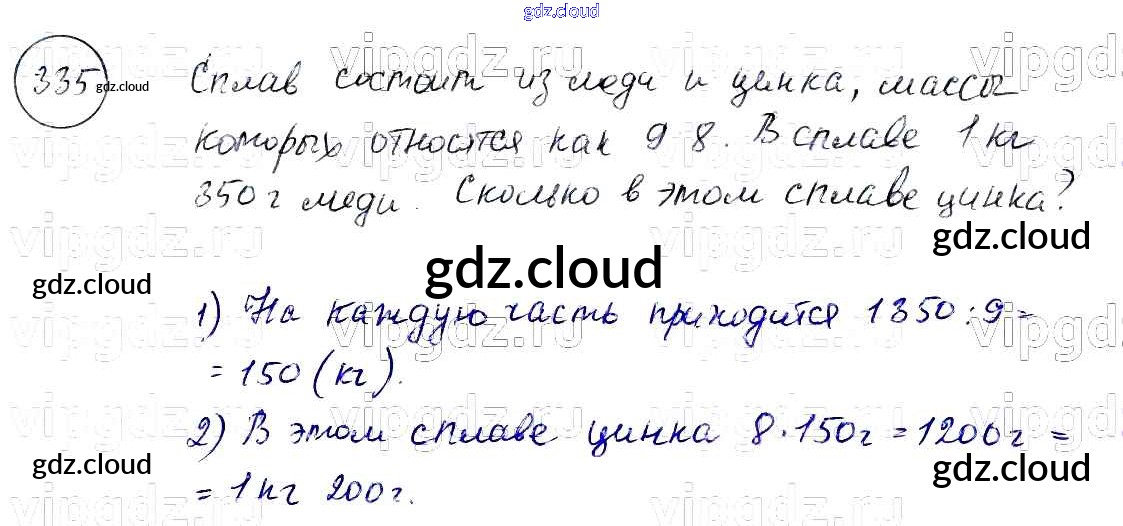 gdz.cloud
335 gdz.cloud
Сплав состоит из меди и цинка, массы
которых относятся как 9 8. В сплаве 1 кг
350 г меди. Сколько в этом сплаве цинка?
vipgdz.ru
gdz.cloud
gdz.cloud
gdz.cloud
1) На каждую часть приходится 1350 : 9 =
= 150 (кг).
2) В этом сплаве цинка 8 · 150 г = 1200 г =
gdz.cloud
gdz.cloud
= 1 кг 200 г.